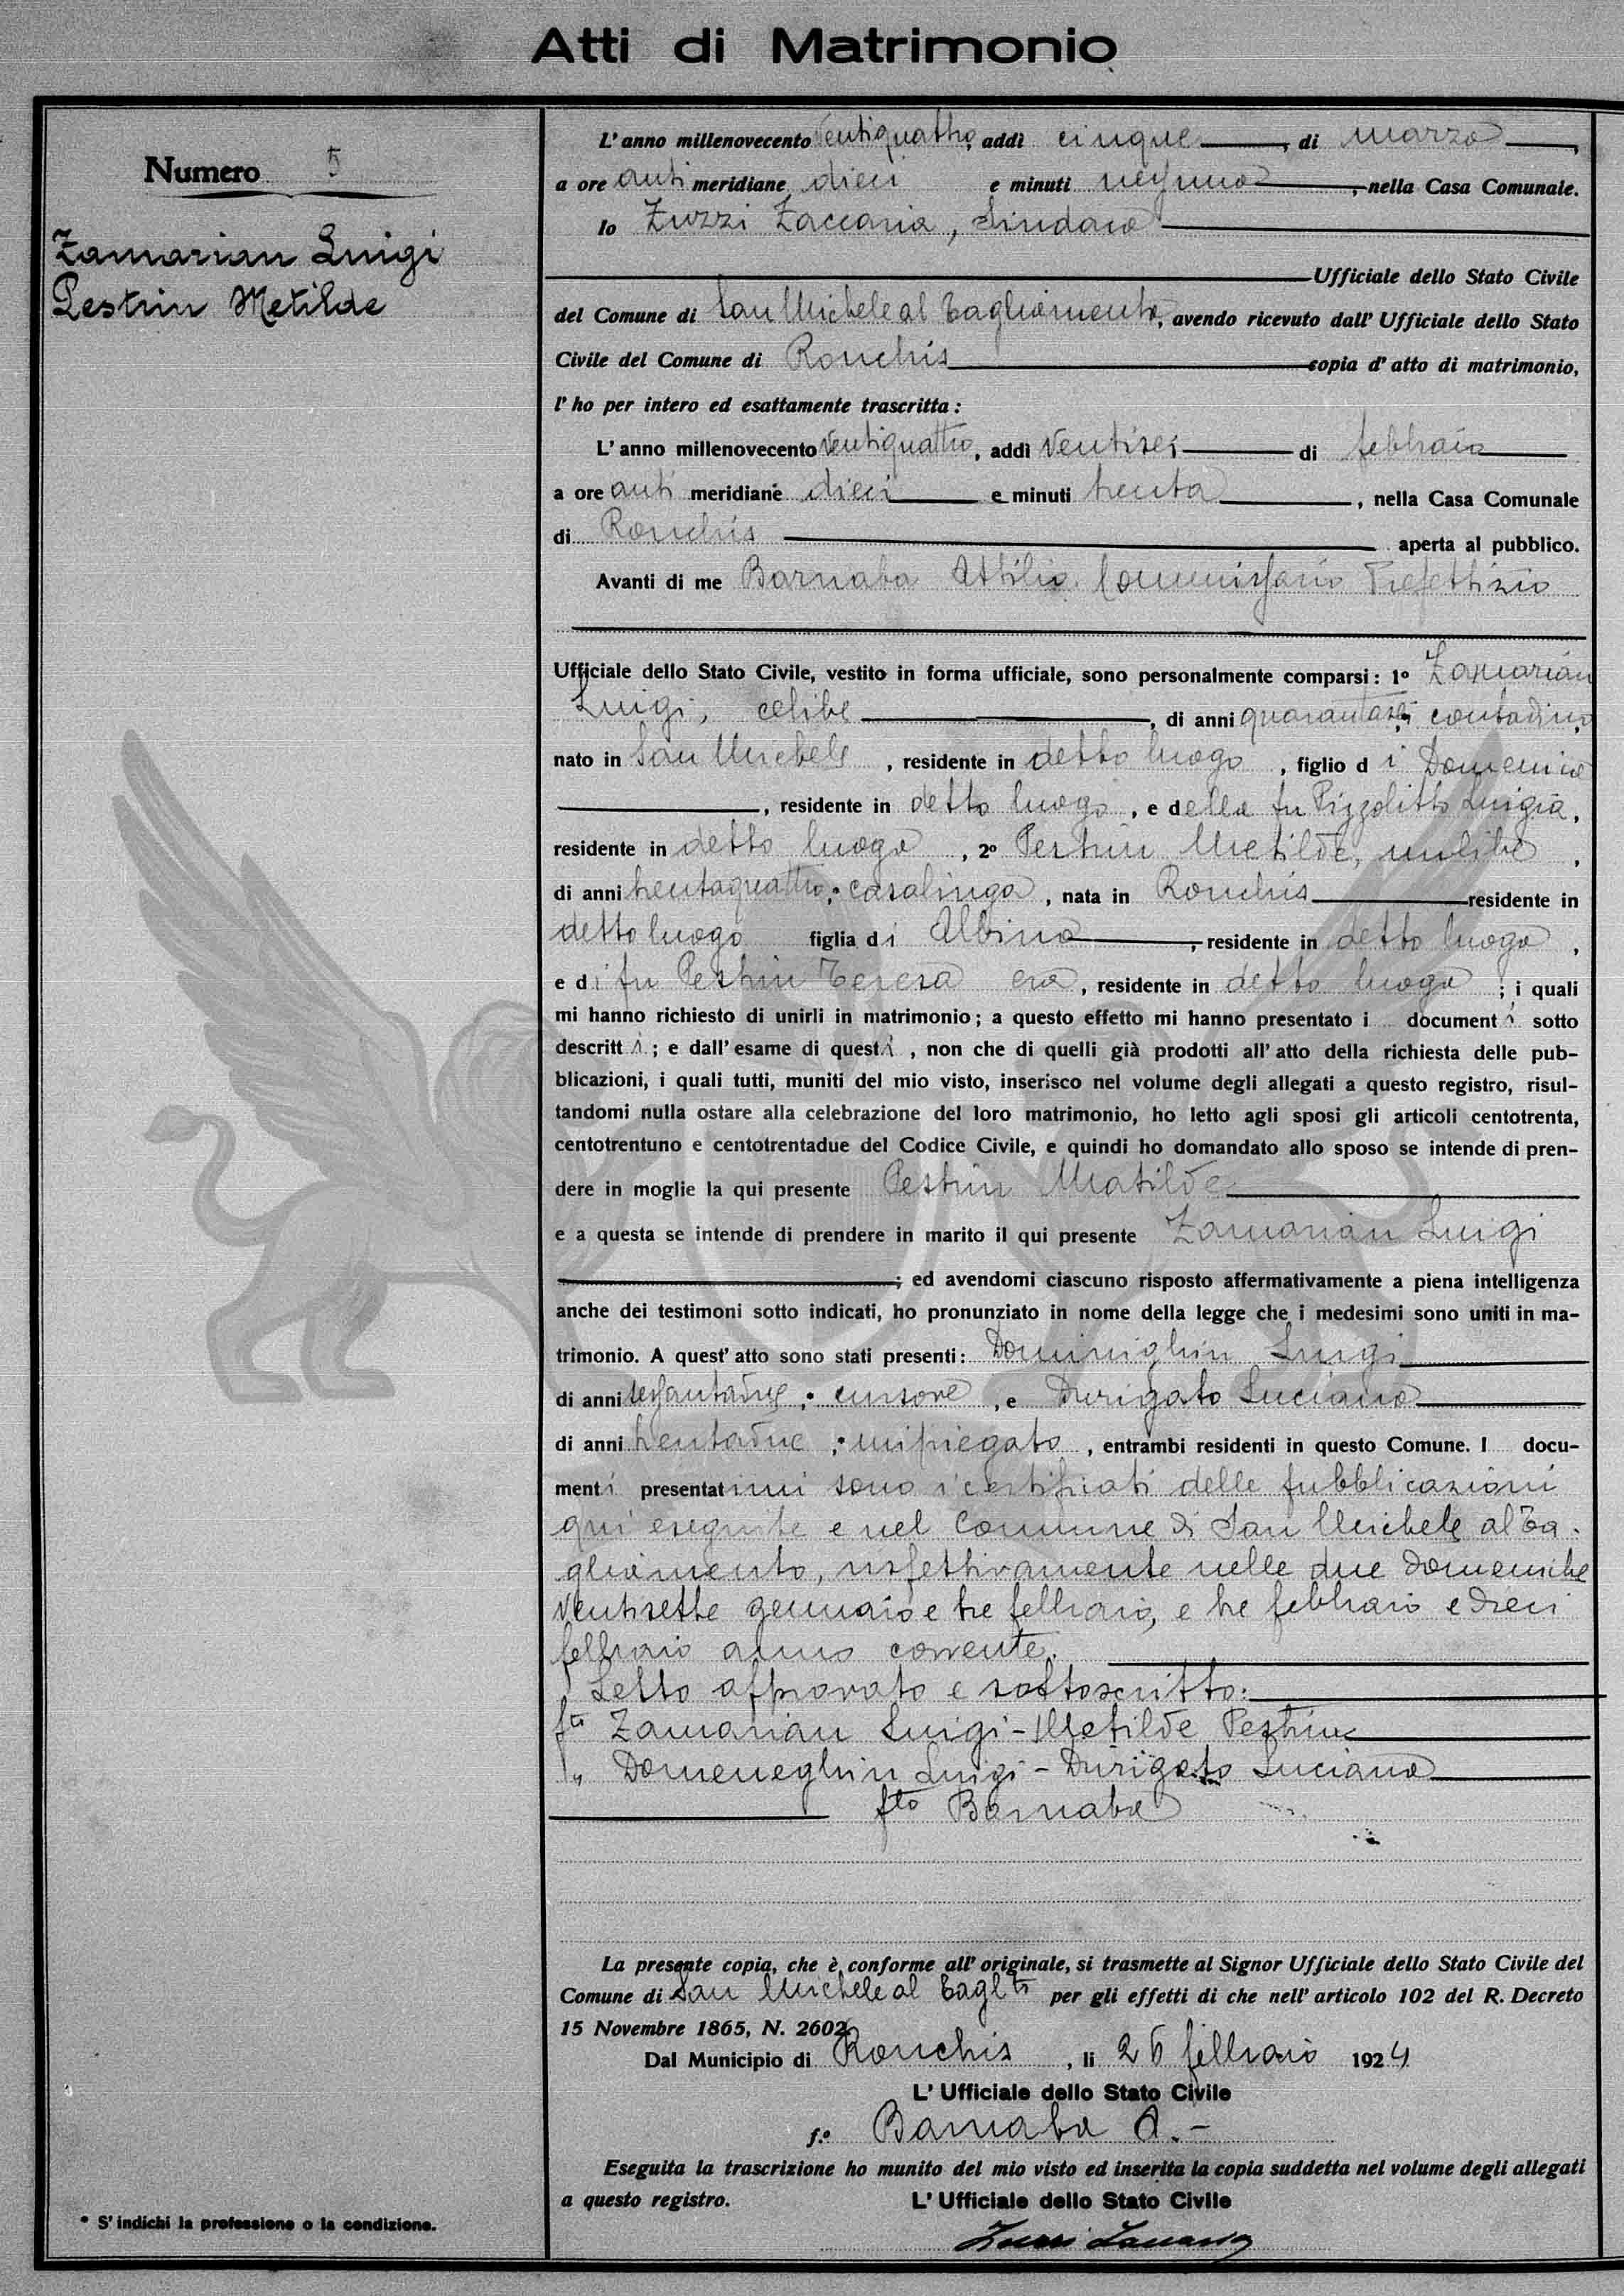 Atti di Matrimonio
Numero 5
Zamarian Luigi
Pestrin Metilde
L'anno millenovecento ventiquattro, addì cinque, di marzo,
a ore anti meridiane dieci e minuti nessuno, nella Casa Comunale.
Io Zuzzi Zaccaria, Sindaco
Ufficiale dello Stato Civile
del Comune di San Michele al Tagliamento, avendo ricevuto dall'Ufficiale dello Stato
Civile del Comune di Ronchis copia d'atto di matrimonio,
l'ho per intero ed esattamente trascritta:
L'anno millenovecento ventiquattro, addì ventisei di febbraio
a ore anti meridiane dieci e minuti trenta, nella Casa Comunale
di Ronchis aperta al pubblico.
Avanti di me Barnaba Attilio Commissario Prefettizio
Ufficiale dello Stato Civile, vestito in forma ufficiale, sono personalmente comparsi: 1º Zamarian
Luigi, celibe, di anni quarantasei, contadino,
nato in San Michele, residente in detto luogo, figlio di Domenico
, residente in detto luogo, e della fu Pizzolitto Luigia,
residente in detto luogo, 2º Pestrin Metilde, nubile,
di anni trentaquattro, casalinga, nata in Ronchis residente in
detto luogo figlia di Albino, residente in detto luogo,
e di fu Pestrin Teresa era, residente in detto luogo; i quali
mi hanno richiesto di unirli in matrimonio; a questo effetto mi hanno presentato i documenti sotto
descritti; e dall'esame di questi, non che di quelli già prodotti all'atto della richiesta delle pub-
blicazioni, i quali tutti, muniti del mio visto, inserisco nel volume degli allegati a questo registro, risul-
tandomi nulla ostare alla celebrazione del loro matrimonio, ho letto agli sposi gli articoli centotrenta,
centotrentuno e centotrentadue del Codice Civile, e quindi ho domandato allo sposo se intende di pren-
dere in moglie la qui presente Pestrin Matilde
e a questa se intende di prendere in marito il qui presente Zamarian Luigi
; ed avendomi ciascuno risposto affermativamente a piena intelligenza
anche dei testimoni sotto indicati, ho pronunziato in nome della legge che i medesimi sono uniti in ma-
trimonio. A quest'atto sono stati presenti: Dominighin Luigi
di anni sessantadue, cursore, e Durigato Luciano
di anni trentadue, impiegato, entrambi residenti in questo Comune. I docu-
menti presentatimi sono i certificati delle pubblicazioni
qui eseguite e nel Comune di San Michele al Ta-
gliamento, rispettivamente nelle due domeniche
ventisette gennaio e tre febbraio, e tre febbraio e dieci
febbraio anno corrente.
Letto approvato e sottoscritto:
fto Zamarian Luigi - Metilde Pestrin
" Domeneghin Luigi - Durigato Luciano
fto Barnaba
La presente copia, che è conforme all'originale, si trasmette al Signor Ufficiale dello Stato Civile del
Comune di San Michele al Tagl.to per gli effetti di che nell'articolo 102 del R. Decreto
15 Novembre 1865, N. 2602.
Dal Municipio di Ronchis, li 26 febbraio 1924
L'Ufficiale dello Stato Civile
f.º Barnaba A.-
Eseguita la trascrizione ho munito del mio visto ed inserita la copia suddetta nel volume degli allegati
a questo registro. L'Ufficiale dello Stato Civile
Zuzzi Zaccaria
* S'indichi la professione o la condizione.